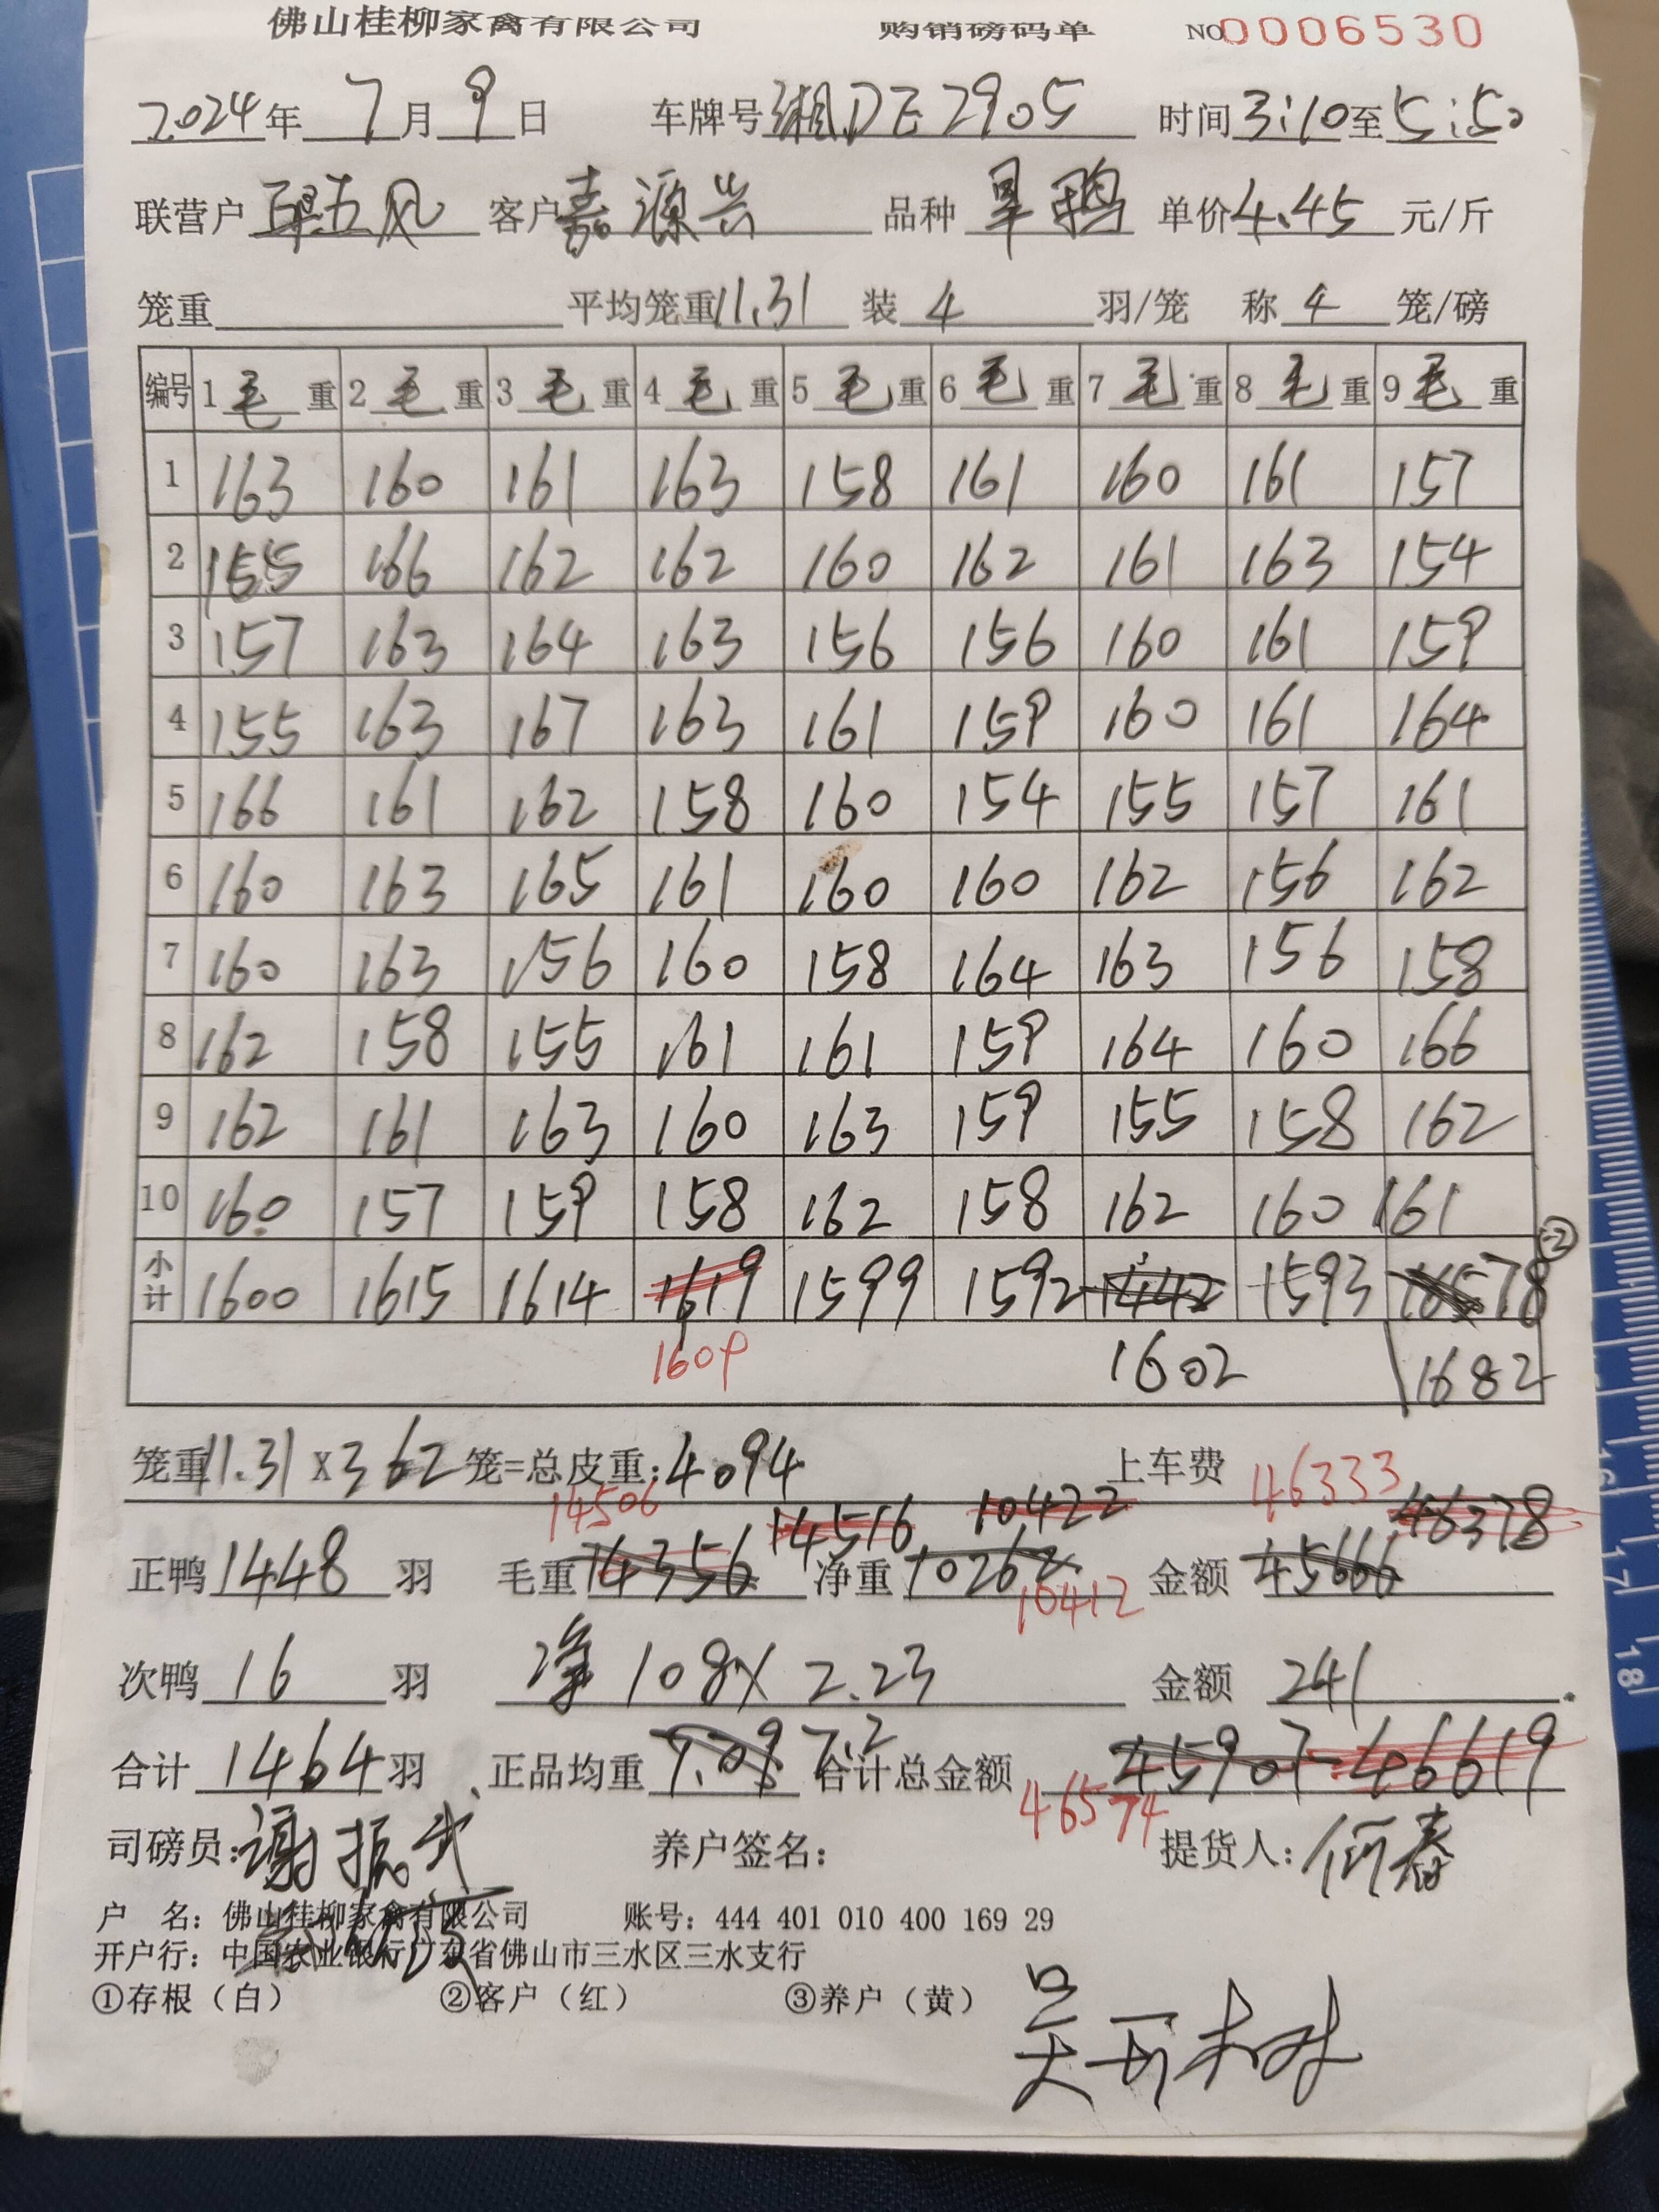 佛山桂柳家禽有限公司 购销磅码单 NO 0006530
2024年 7月 9日 车牌号 湘DE2905 时间 3:10 至 5:50
联营户 五凤 客户 嘉源兴 品种 旱鸭 单价 4.45 元/斤
笼重 平均笼重 11.31 装 4 羽/笼 称 4 笼/磅
编号 1毛重 2毛重 3毛重 4毛重 5毛重 6毛重 7毛重 8毛重 9毛重
1 163 160 161 163 158 161 160 161 157
2 155 166 162 162 160 162 161 163 154
3 157 163 164 163 156 156 160 161 159
4 155 163 167 163 161 159 160 161 164
5 166 161 162 158 160 154 155 157 161
6 160 163 165 161 160 160 162 156 162
7 160 163 156 160 158 164 163 156 158
8 162 158 155 161 161 159 164 160 166
9 162 161 163 160 163 159 155 158 162
10 160 157 159 158 162 158 162 160 161
-2
小计 1600 1615 1614 1619 1599 1592 1442 1593 78
1609 1602 1682
笼重 11.31 x 362 笼=总皮重: 4094 上车费 46333
14506 14516 10422 46378
正鸭 1448 羽 毛重 14356 净重 10262 金额 45666
10412
次鸭 16 羽 净 108 x 2.23 金额 241
合计 1464 羽 正品均重 7.09 7.2 合计总金额 45907 46619
46574
司磅员: 谢振武 养户签名: 提货人: 何春
户 名: 佛山桂柳家禽有限公司 账号: 444 401 010 400 169 29
开户行: 中国农业银行广东省佛山市三水区三水支行
①存根（白） ②客户（红） ③养户（黄）